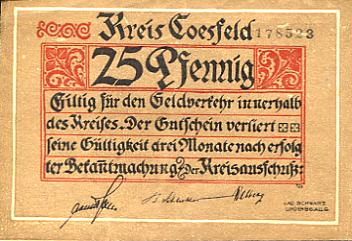 Kreis Coesfeld 178523
25 Pfennig
Giltig für den Geldverkehr innerhalb
des Kreises. Der Gutschein verliert
seine Gültigkeit drei Monate nach erfolg
ter Bekanntmachung. Der Kreisausschuß: